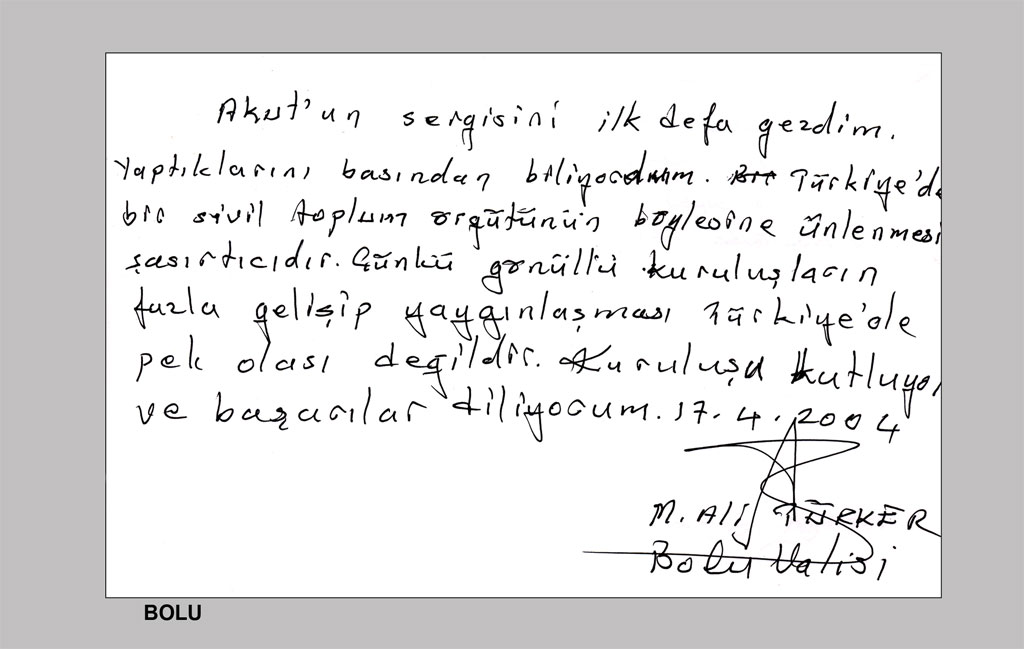 Akut'un sergisini ilk defa gezdim.
Yaptıklarını basından biliyordum. Bir Türkiye'de
bir sivil toplum örgütünün böylesine ünlenmesi
şasırtıcıdır. Çünkü gönüllü kuruluşların
fazla gelişip yaygınlaşması Türkiye'de
pek olası değildir. Kuruluşu kutluyor
ve başarılar diliyorum. 17.4.2004
M. Ali TÜRKER
Bolu Valisi
BOLU